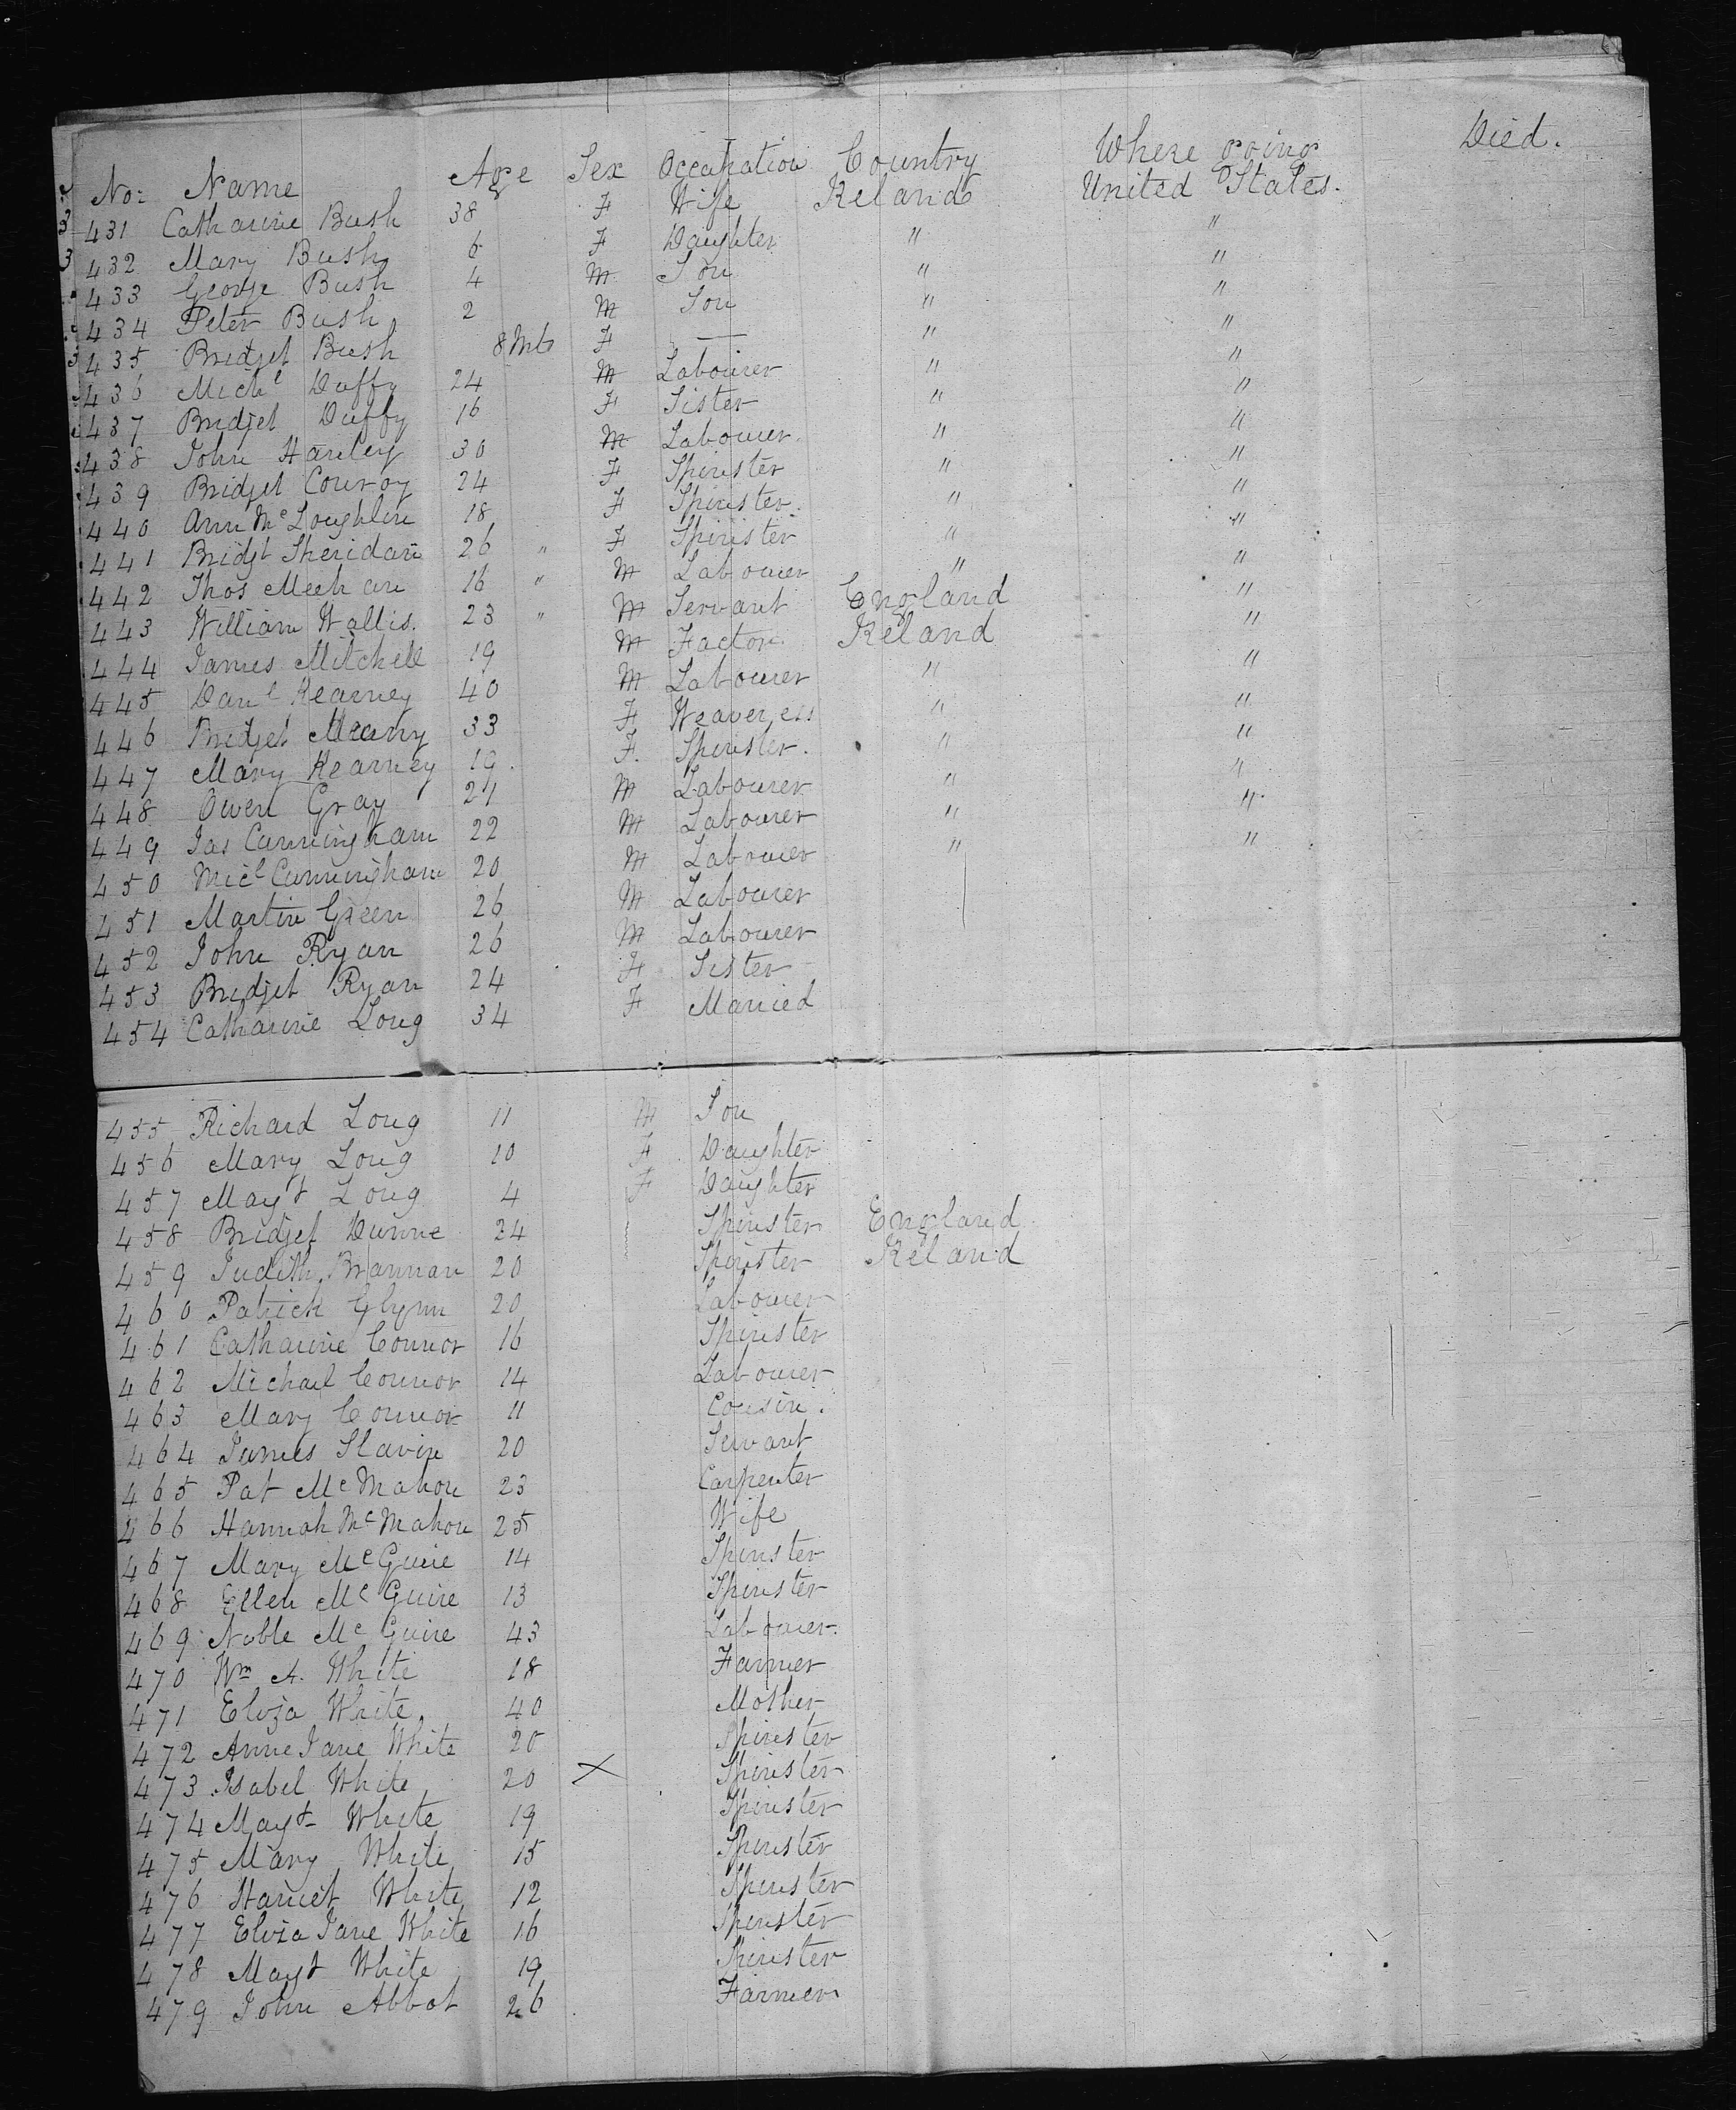 No: Name Age Sex Occupation Country Where going Died.
431 Catharine Bush 38 F Wife Ireland United States.
432 Mary Bush 6 F Daughter " "
433 George Bush 4 M Son " "
434 Peter Bush 2 M Son " "
435 Bridget Bush 8 Mts F — " "
436 Michl Duffy 24 M Labourer " "
437 Bridget Duffy 16 F Sister " "
438 John Hanley 30 M Labourer. " "
439 Bridget Conroy 24 F Spinster " "
440 Ann McLoughlin 18 F Spinster. " "
441 Bridgt Sheridan 26 " F Spinster " "
442 Thos Meehan 16 " M Labourer " "
443 William Wallis. 23 " M Servant England "
444 James Mitchell 19 M Factor. Ireland "
445 Danl Kearney 40 M Labourer " "
446 Bridget Meany 33 F Weaveress " "
447 Mary Kearney 19. F. Spinster. " "
448 Owen Gray 21 M Labourer " "
449 Jas Cunningham 22 M Labourer " "
450 Micl Cunningham 20 M Labourer " "
451 Martin Green 26 M Labourer
452 John Ryan 26 M Labourer
453 Bridget Ryan 24 F Sister
454 Catharine Long 34 F Married
455 Richard Long 11 M Son
456 Mary Long 10 F Daughter
457 Mayt Long 4 F Daughter
458 Bridget Dunne 24 Spinster England
459 Judith Brannan 20 Spinster Ireland
460 Patrick Glynn 20 Labourer
461 Catharine Connor 16 Spinster
462 Michael Connor 14 Labourer
463 Mary Connor 11 Cousin.
464 James Slavin 20 Servant
465 Pat McMahon 23 Carpenter
466 Hannah McMahon 25 Wife
467 Mary McGuire 14 Spinster
468 Ellen McGuire 13 Spinster
469 Noble McGuire 43 Labourer.
470 Wm A. White 18 Farmer
471 Eliza White 40 Mother
472 Anne Jane White 20 Spinster
473 Isabel White 20 X Spinster
474 Mayt White 19 Spinster
475 Mary White 15 Spinster
476 Harriet White 12 Spinster
477 Eliza Jane White 16 Spinster
478 Mayt White 19 Spinster
479 John Abbot 26 Farmer